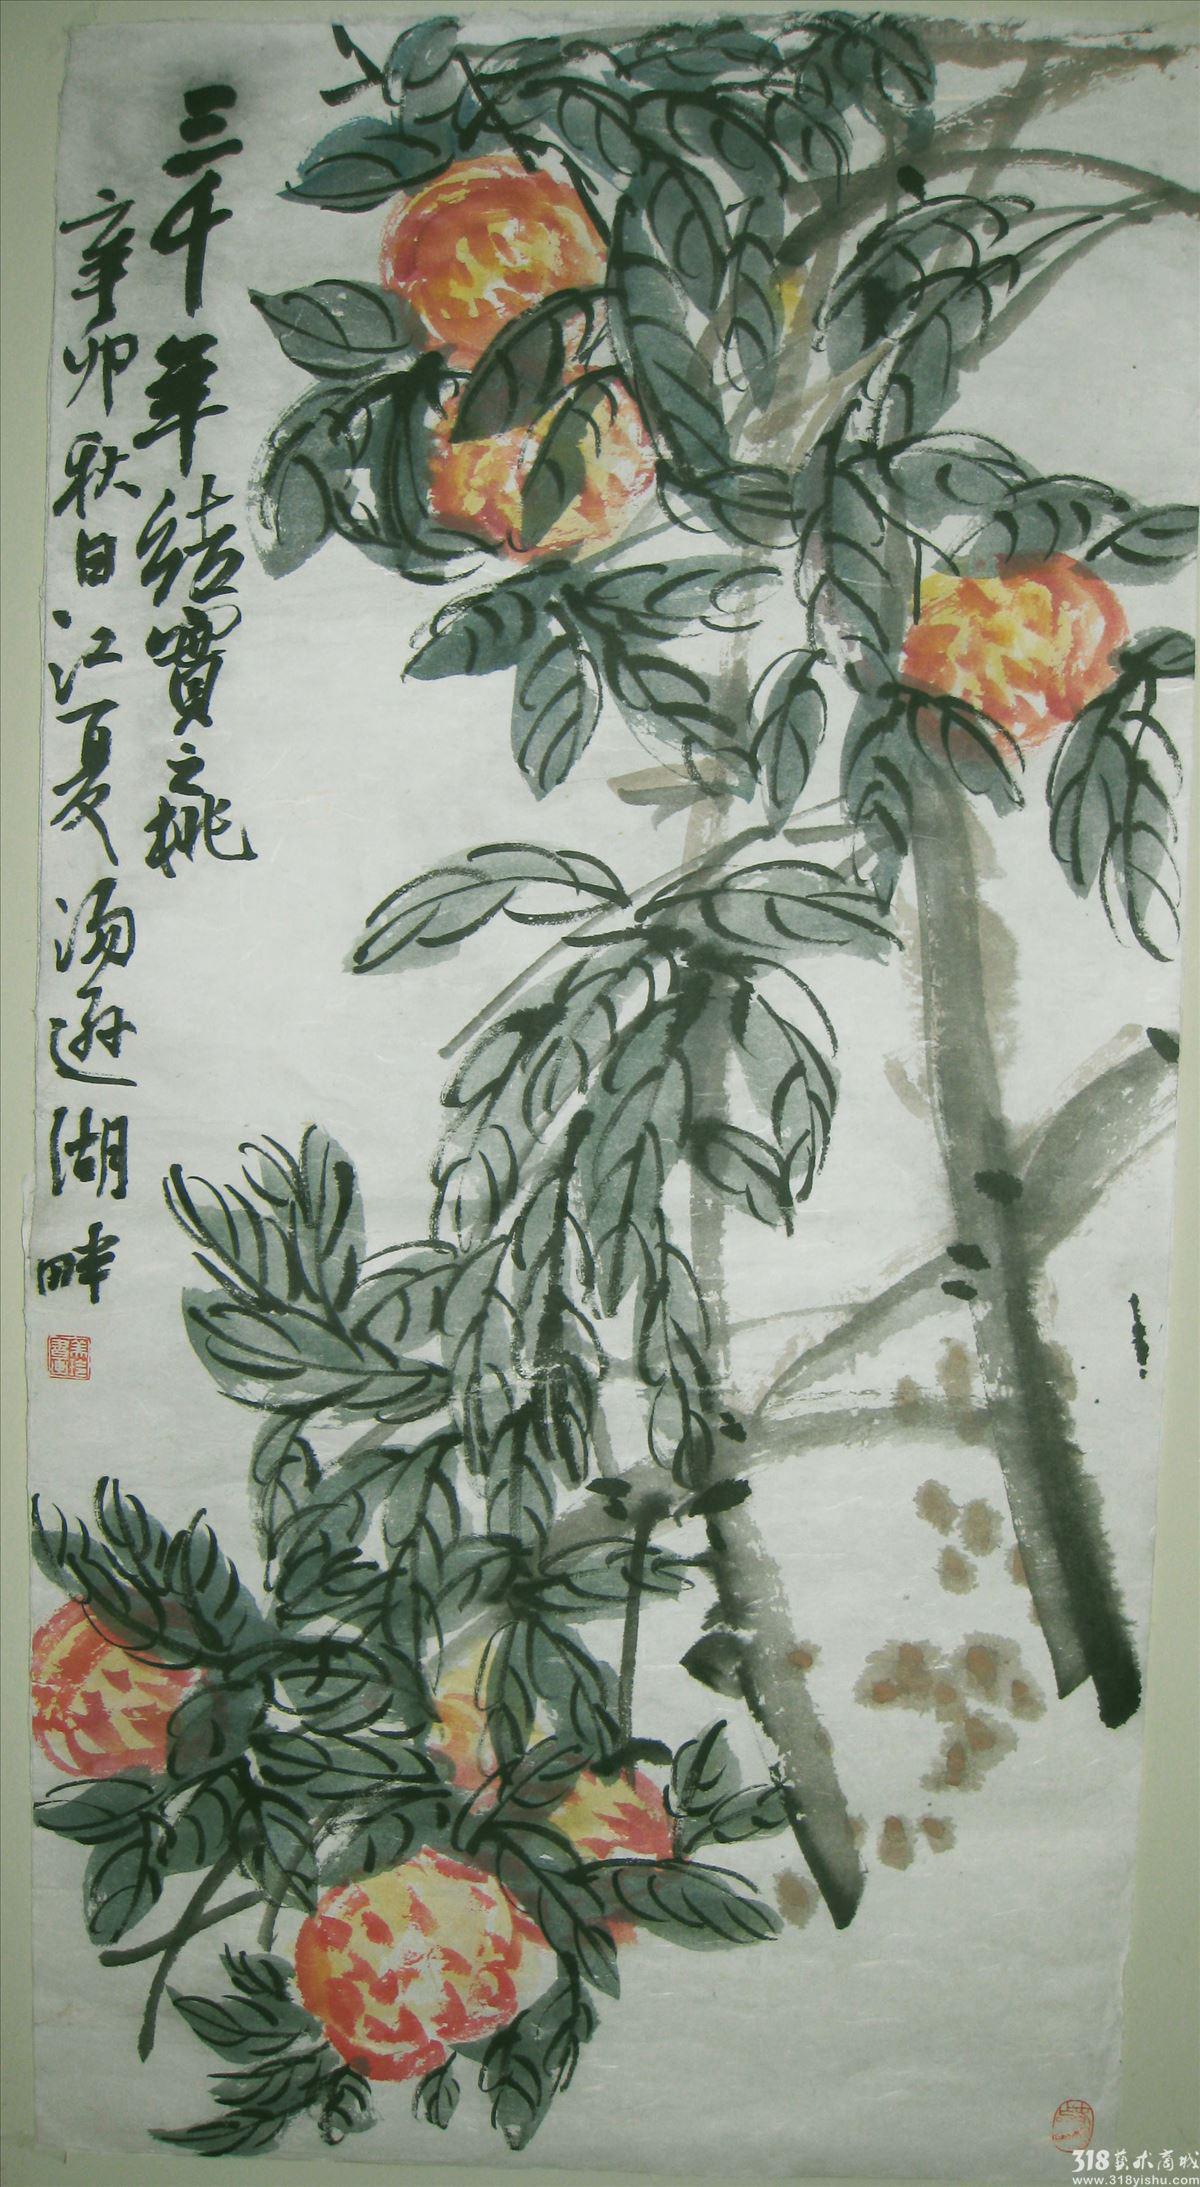 三千年结實之桃
辛卯秋日江夏汤逊湖畔
318艺术商城
www.318yishu.com